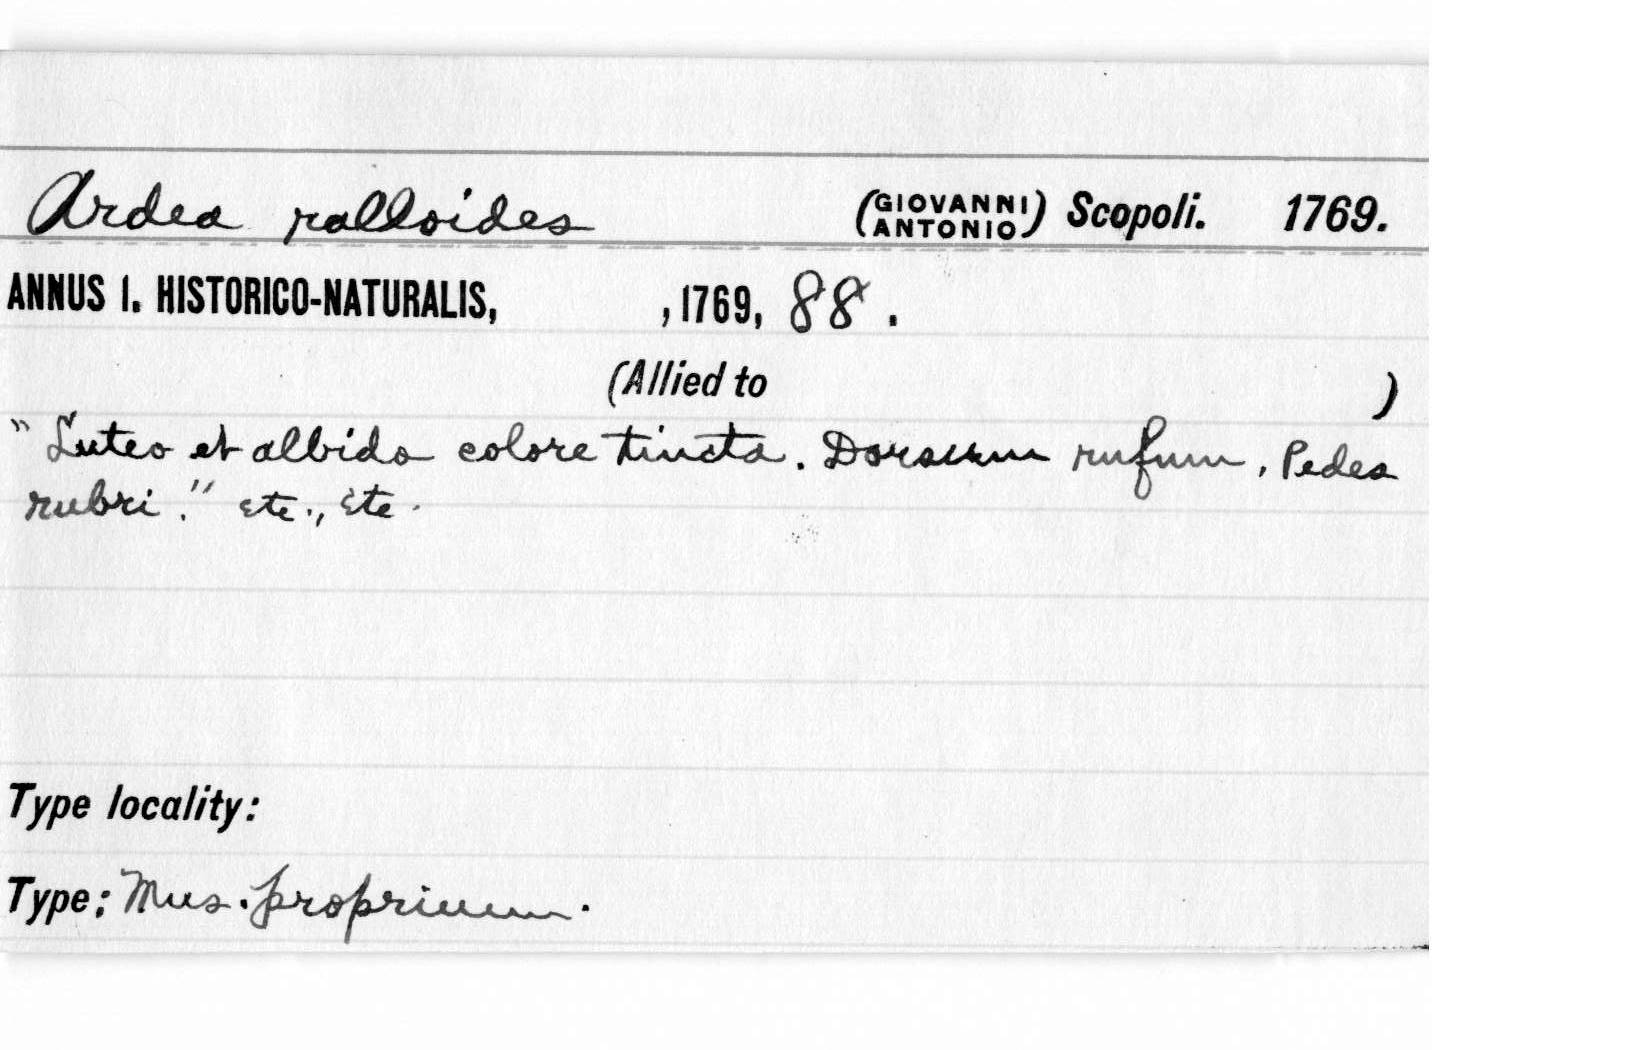 Ardea ralloides (GIOVANNI ANTONIO) Scopoli. 1769.
ANNUS I. HISTORICO-NATURALIS, , 1769, 88.
(Allied to )
"Luteo et albido colore tincta. Dorsum rufum, Pedes
rubri." etc., etc.
Type locality:
Type: Mus. proprium.